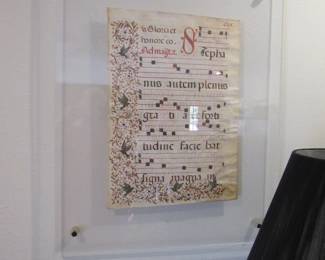 Gloria et
honore co.
Ad magta. Stepha
nus autem plenus
forti
tudine facie bat
signa magna in